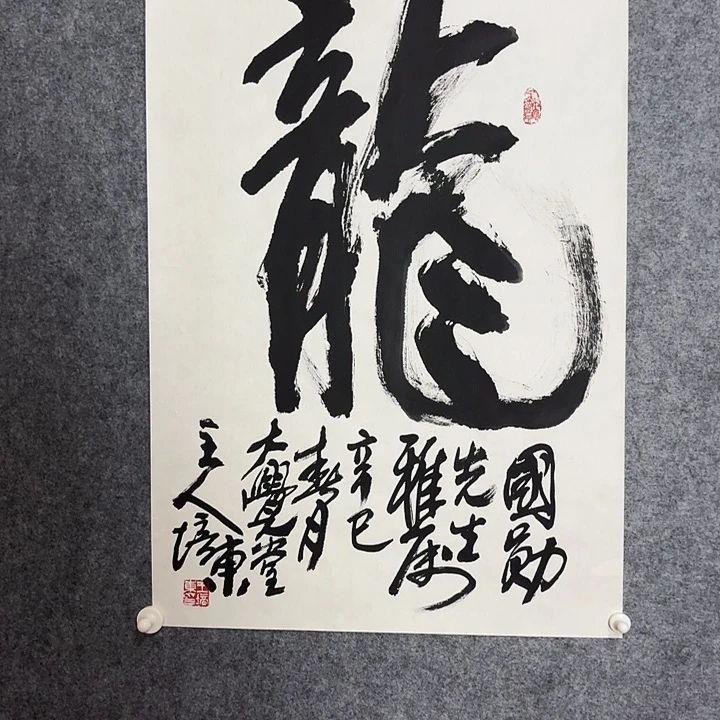 龍
國勛
先生
雅屬
辛巳
春月
大覺堂
主人培東